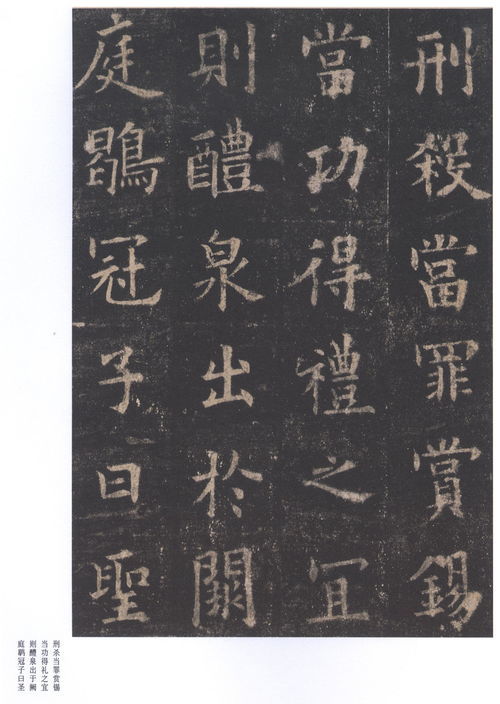 刑殺當罪賞錫
當功得禮之冝
則醴泉出於闕
庭鶡冠子曰聖
刑杀当罪赏锡
当功得礼之宜
则醴泉出于阙
庭鹖冠子曰圣